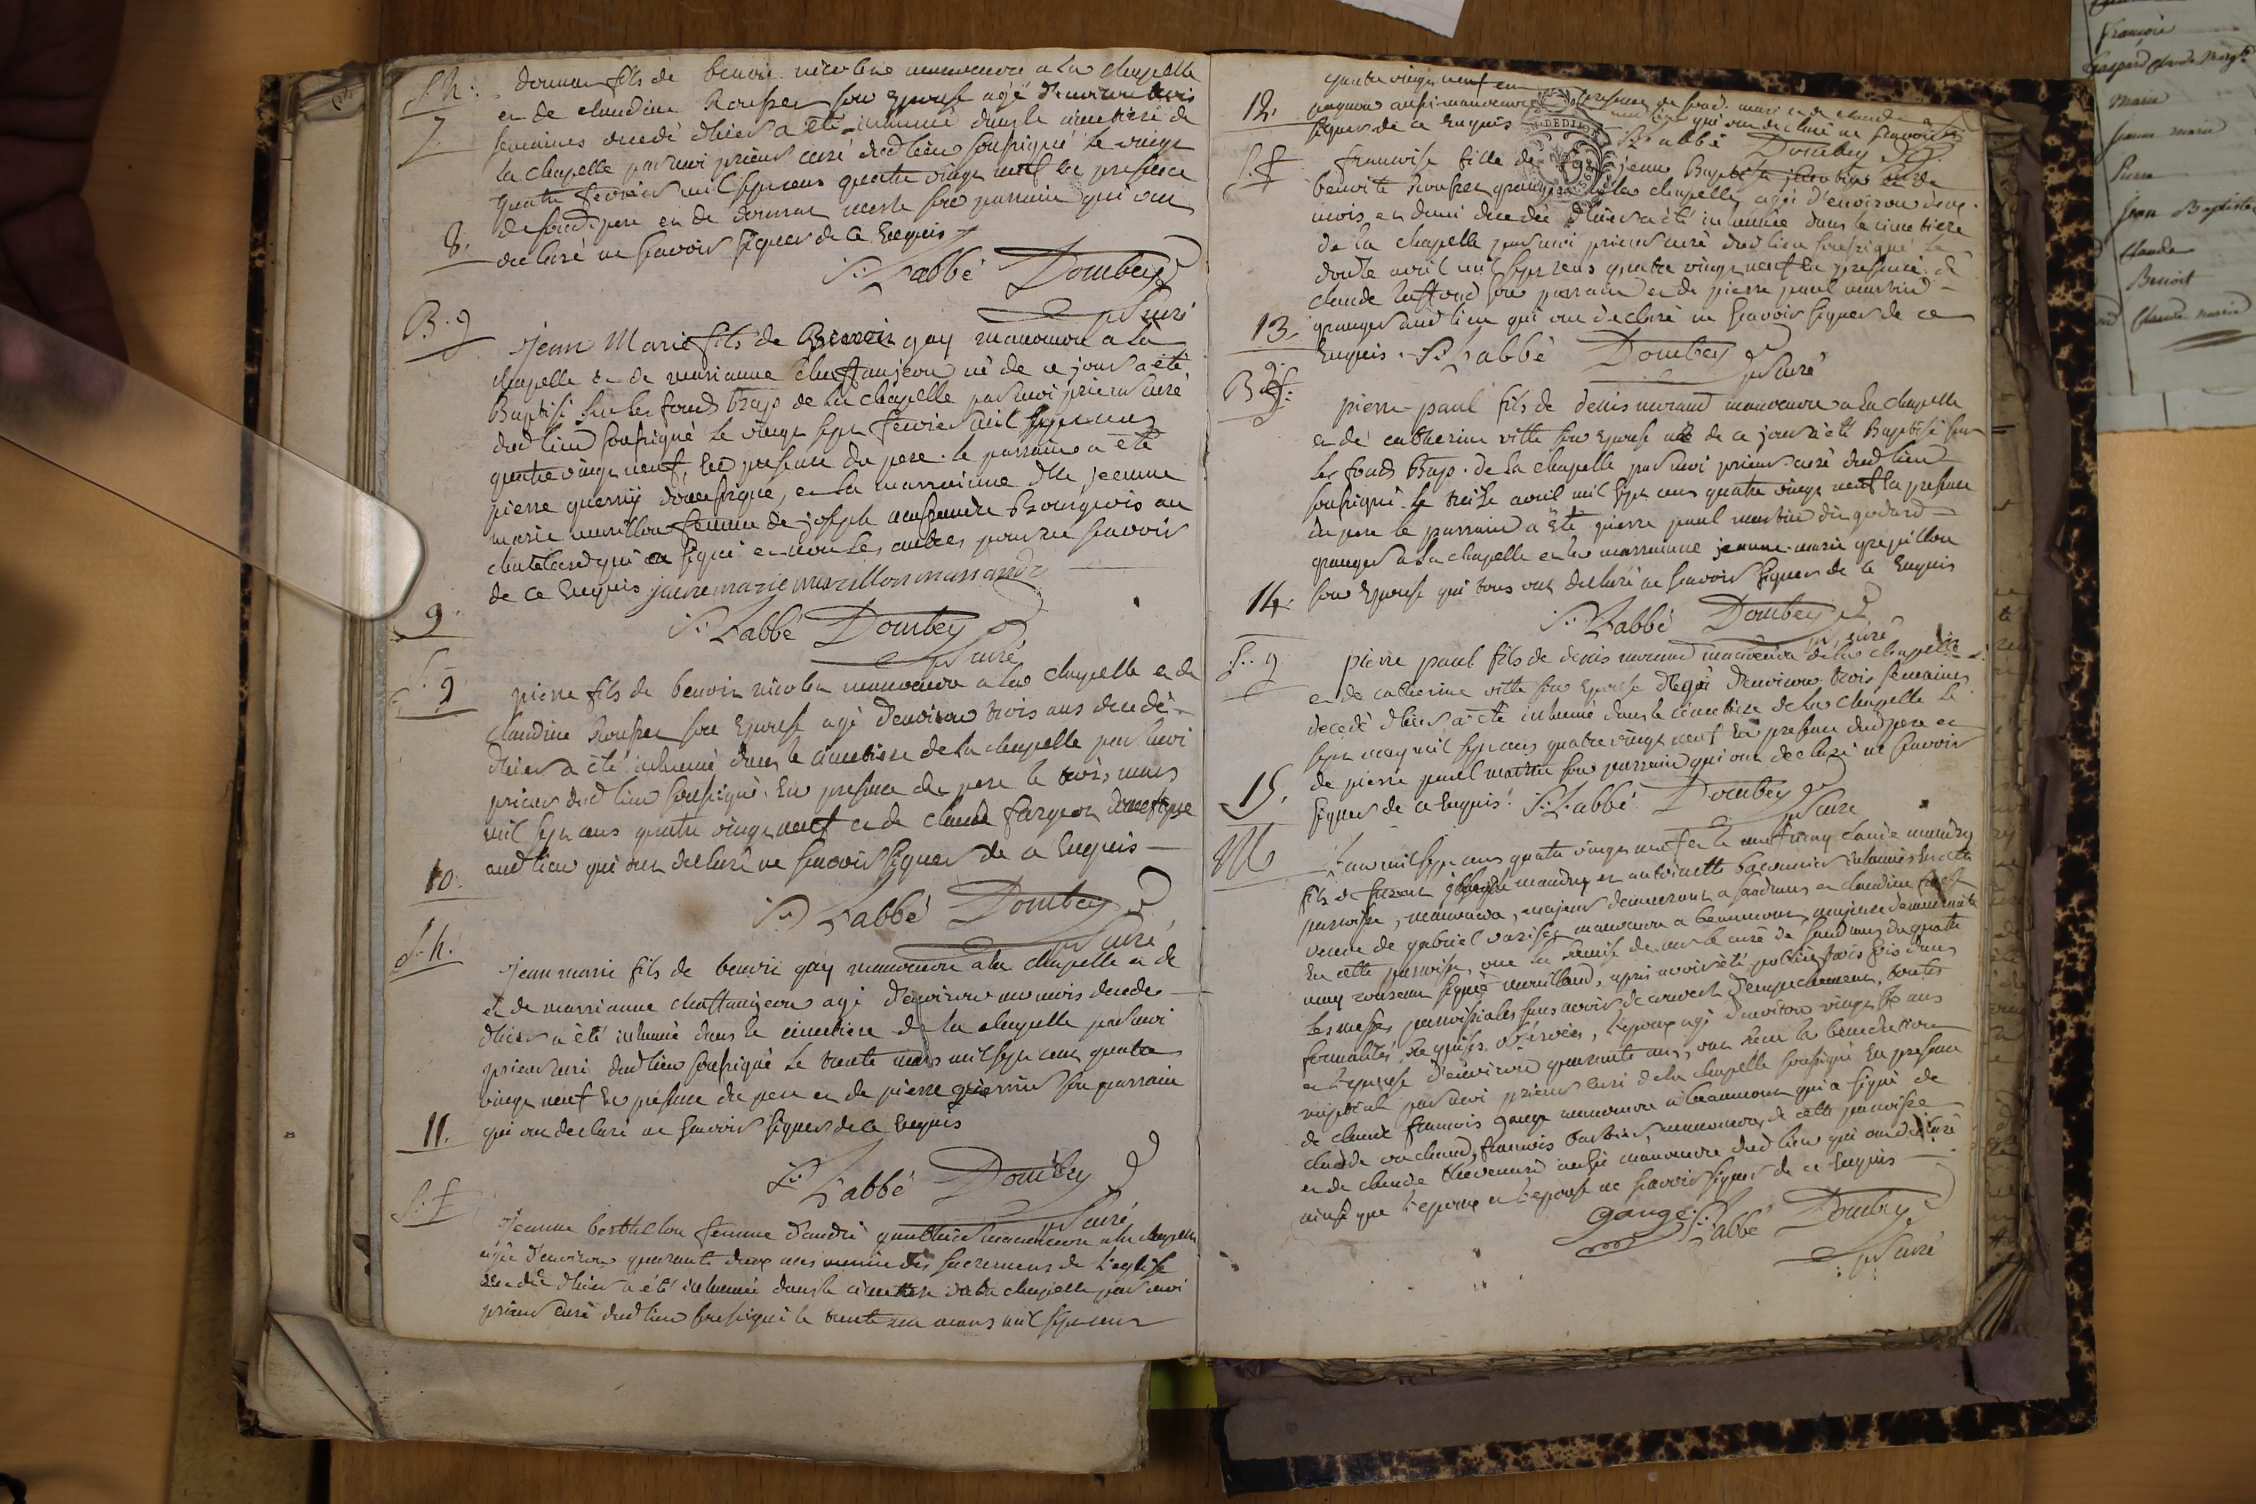 S. h.
7.
fils de benoit nicolin manouvre a la chapelle
et de claudine son epouse agé d'environ trois
semaines decedé d'hier a été inhumé dans le cimetiere de
la chapelle par moi prieur curé dud lieu soussigné le vingt
quatre fevrier mil sept cens quatre vingt neuf en presence
dud pere et de son parrain qui ont
declaré ne scavoir signer de ce enquis
8.
S: L'abbé Dombey
p. Curé
B. g
jean Marie fils de Benoit gay manouvre a la
chapelle et de marianne chaffanjeon né de ce jour a été
Baptisé sur les fonds Bap. de la chapelle par moi prieur curé
dud lieu soussigné le vingt sept fevrier mil sept cens
quatre vingt neuf, en presence du pere. le parrain a été
pierre domestique, et la marrainne dlle jeanne
marie murillon femme de joseph Bourgeois au
qui a signé et non les autres pour ne scavoir
de ce enquis jeanne marie
9.
S: L'abbé Dombey
p. Curé
S. g
pierre fils de benoit nicolin manouvre a la chapelle et de
claudine son epouse agé d'environ trois ans decedé
d'hier a été inhumé dans le cimetiere de la chapelle par moi
prieur dud lieu soussigné. En presence du pere le trois mars
mil sept cens quatre vingt neuf et de claude fargeot domestique
aud lieu qui ont declaré ne scavoir signer de ce enquis
10.
S: L'abbé Dombey
p. Curé
S. h.
jean marie fils de benoit gay manouvre a la chapelle et de
et de marrianne chaffanjeon agé d'environ un mois decedé
d'hier a été inhumé dans le cimetiere de la chapelle par moi
prieur curé dud lieu soussigné le trente mars mil sept cens quatre
vingt neuf en presence du pere et de pierre son parrain
qui ont declaré ne scavoir signer de ce enquis
11.
S: L'abbé Dombey
p. Curé
S: f
jeanne berthelon femme d'andré manouvre a la chapelle
agée d'environ quarante deux ans munie des sacremens de l'eglise
decedée d'hier a été inhumée dans le cimetiere de la chapelle par moi
prieur curé dud lieu soussigné le trente un mars mil sept cens
quatre vingt neuf en presence de mari et de claude
12.
aussi manouvre qui ont declaré ne scavoir
signer de ce enquis S: L'abbé Dombey
S. f
francoise fille de jean Baptiste et de
benoite granger a la chapelle, agée d'environ deux
mois et demi decedée d'hier a été inhumée dans le cimetiere
de la chapelle par moi prieur curé dud lieu soussigné le
douze avril mil sept cens quatre vingt neuf en presence de
claude son parrain et de pierre paul martin
13.
granger aud lieu qui ont declaré ne scavoir signer de ce
enquis. S: L'abbé Dombey
p. Curé
B. g.
pierre-paul fils de denis morand manouvre a la chapelle
et de catherine vitte son epouse né de ce jour a été Baptisé sur
les fonds Bap. de la chapelle par moi prieur-curé dud lieu
soussigné le treize avril mil sept cens quatre vingt neuf en presence
du pere le parrain a été pierre paul martin dit godard
granger a la chapelle et la marrainne jeanne-marie
14.
son epouse qui tous ont declaré ne scavoir signer de ce enquis
S: L'abbé Dombey
p. Curé
S.. g
pierre paul fils de denis morand manouvre de la chapelle
et de catherine vitte son epouse agé d'environ trois semaines
decedé d'hier a été inhumé dans le cimetiere de la chapelle le
sept may mil sept cens quatre vingt neuf en presence dud pere et
15.
de pierre paul martin son parrain qui ont declaré ne scavoir
signer de ce enquis. S: L'abbé Dombey
p. Curé
M
L'an mil sept cens quatre vingt neuf et le neuf may claude
fils de et antoinette inhumés en cette
paroisse, manouvre, majeur demeurant a et claudine
veuve de gabriel manouvre a beaumont majeure demeurante
en cette paroisse, vue la remise de mr le curé de du quatre
may signé après avoir été publiés trois fois dans
les messes paroissiales sans avoir decouvert d'empechement, toutes
formalités requises observées, l'epoux agé d'environ vingt six ans
et l'epouse d'environ quarante ans, ont recu la benediction
nuptiale par moi prieur curé de la chapelle soussigné en presence
de claude francois gange manouvre a beaumont qui a signé de
claude francois manouvre de cette paroisse
et de claude thevenard aussi manouvre dud lieu qui ont declaré
ainsi que l'epoux et l'epouse ne scavoir signer de ce enquis
gange S: L'abbé Dombey
p. Curé
françoise
gaspard
marie
jeanne marie
Pierre
jean Baptiste
Claude
Benoit
Claude marie